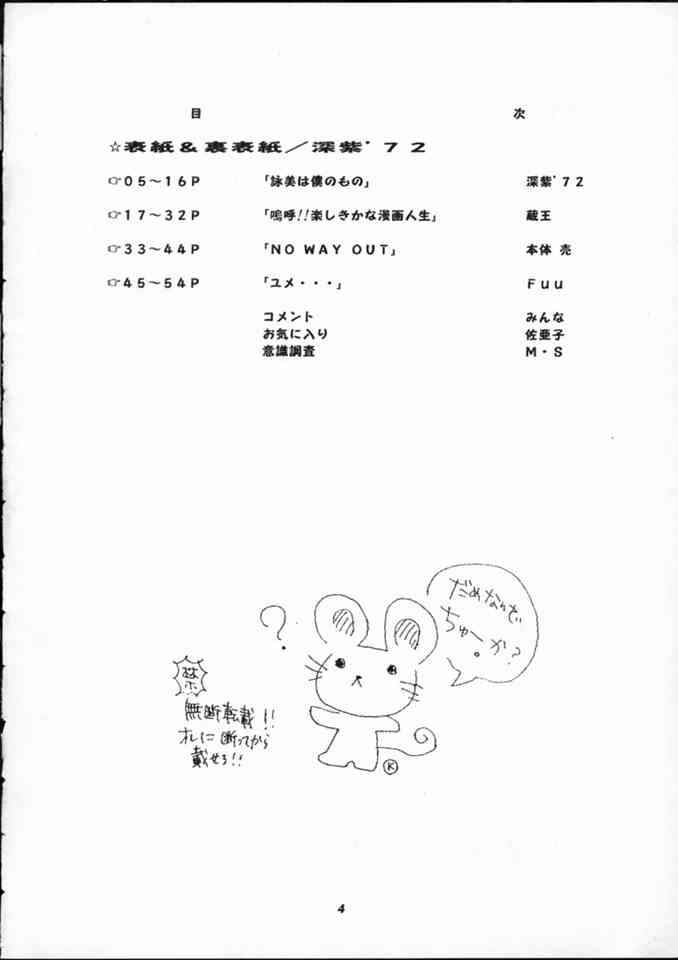 目 次
☆表紙＆裏表紙／深紫'７２
☞０５～１６Ｐ 「詠美は僕のもの」 深紫'７２
☞１７～３２Ｐ 「嗚呼!!楽しきかな漫画人生」 蔵王
☞３３～４４Ｐ 「ＮＯ ＷＡＹ ＯＵＴ」 本体 売
☞４５～５４Ｐ 「ユメ・・・」 Ｆｕｕ
コメント みんな
お気に入り 佐亜子
意識調査 Ｍ・Ｓ
?
だめなの
ちゅーか?
禁
無断転載!!
オレに断ってから
載せろ!!
K
4